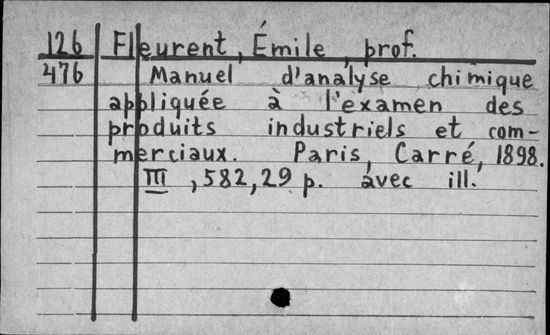 126 Fleurent, Émile, prof.
476 Manuel d'analyse chimique
appliquée à l'examen des
produits industriels et com-
merciaux. Paris, Carré, 1898.
III, 582, 29 p. avec ill.